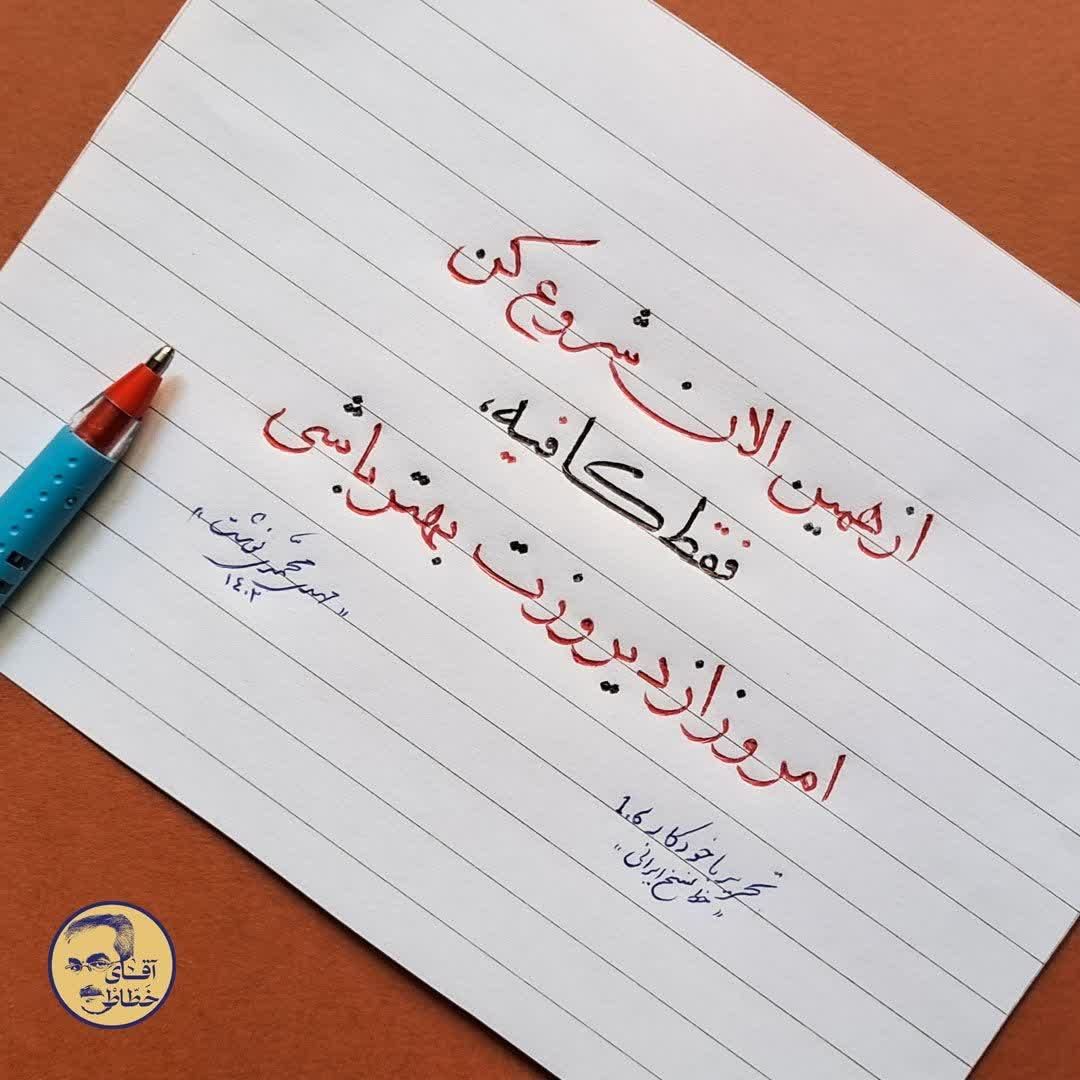 از همین الان شروع کن
فقط کافیه،
امروز از دیروزت بهتر باشی
"مهدی محمودی نوشت"
۱۴۰۲
تحریر با خودکار 1.6
"خط نسخ ایرانی"
آقای
خطاط